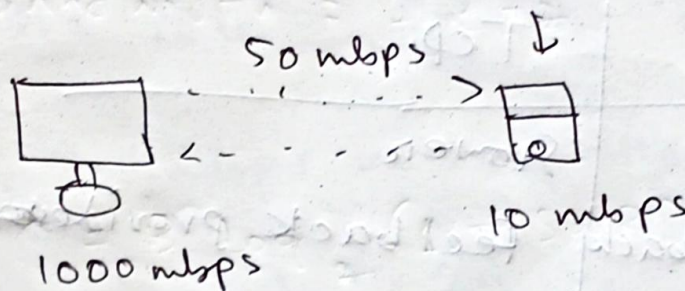 50 mbps
10 mbps
1000 mbps